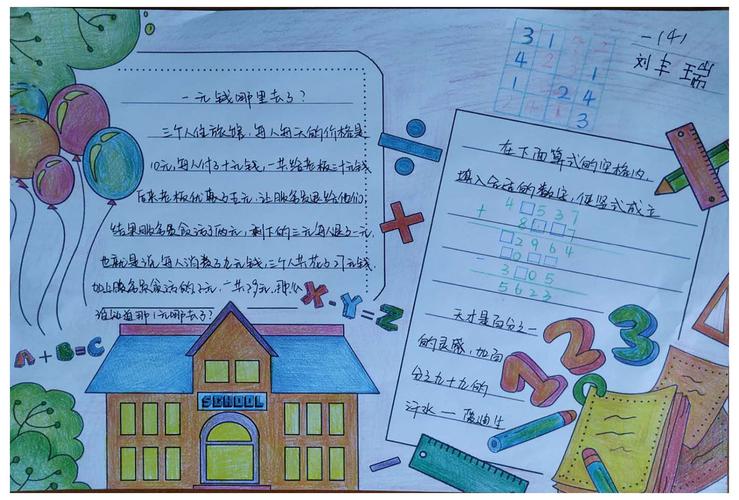 一(4)
刘丰瑞
3 1
4 1
1 2 4
3
一元钱哪里去了?
三个人住旅馆,每人每天的价格是
10元,每人付了十元钱,一共给老板三十元钱
后来老板优惠了五元,让服务员退给他们
结果服务员贪污了两元,剩下的三元每人退了一元,
也就是说,每人消费了九元钱,三个人共花了27元钱,
加上服务员贪污的2元,一共29元,那么
谁知道那1元哪去了?
在下面算式的空格内,
填入合适的数字,使竖式成立
4□537
+ 8□□7
□2964
□0□□
- 3□05
5623
天才是百分之一
的灵感,加百
分之九十九的
汗水——爱迪生
X-Y=Z
A+B=C
SCHOOL
123